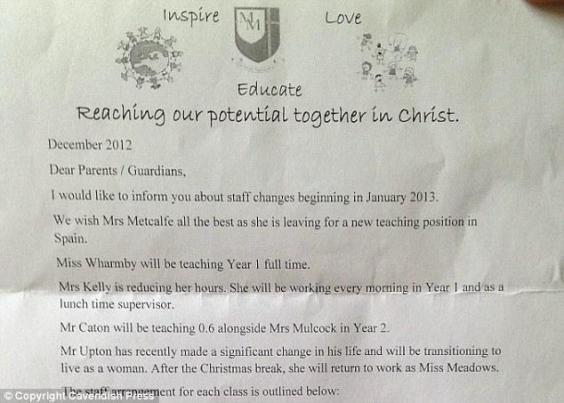 Inspire
Love
Educate
Reaching our potential together in Christ.
December 2012
Dear Parents / Guardians,
I would like to inform you about staff changes beginning in January 2013.
We wish Mrs Metcalfe all the best as she is leaving for a new teaching position in
Spain.
Miss Wharmby will be teaching Year 1 full time.
Mrs Kelly is reducing her hours. She will be working every morning in Year 1 and as a
lunch time supervisor.
Mr Caton will be teaching 0.6 alongside Mrs Mulcock in Year 2.
Mr Upton has recently made a significant change in his life and will be transitioning to
live as a woman. After the Christmas break, she will return to work as Miss Meadows.
The staff arrangement for each class is outlined below:
© Copyright Cavendish Press